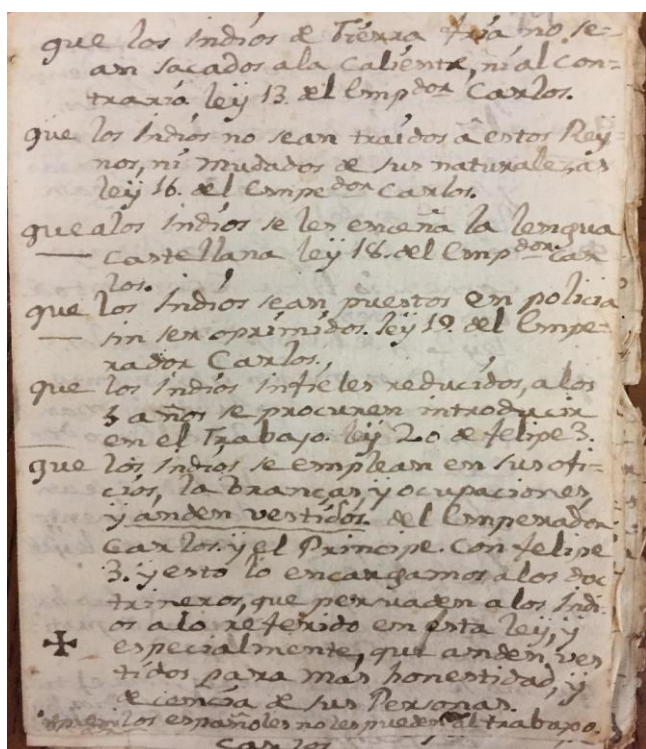 que los Indios de Tierra fria no se=
an sacados ala Caliente, ni al Con=
traria ley 13. del Emp.dor Carlos.
que los Indios no sean traidos â estos Rey
nos, ni mudados de sus naturalezas
ley 16. del Empe.dor Carlos.
que alos Indios se les enceña la lengua
Castellana ley 18. del Emp.dor Car
los.
que los Indios sean puestos en policia
sin ser oprimidos. ley 19. del Empe=
rador Carlos.
que los Indios infieles reducidos, a los
3 años se procuren introducir
en el Trabajo. ley 20 de felipe 3.
que los Indios se emplean en sus ofi=
cios, la branças ÿ ocupaciones,
ÿ anden vestidos. del Emperador
Carlos. y el Principe. Con felipe
3. y esto lo encargamos alos doc
trineros, que persuaden a los Indi
os alo referido en esta ley, ÿ
especialmente, que anden ves
tidos para mas honestidad, ÿ
decencia de sus Personas.
los españoles no les pueden al trabajo.
Carlos